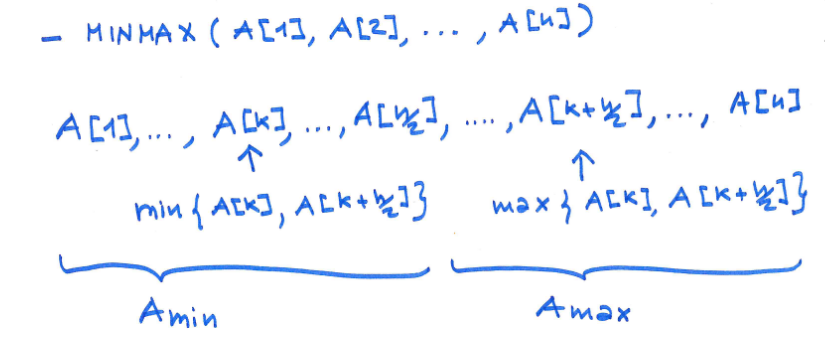 – MINMAX ( A[1], A[2], ... , A[n])
A[1],..., A[k], ..., A[n/2], ...., A[k+n/2],..., A[n]
↑ ↑
min{A[k], A[k+n/2]} max{A[k], A[k+n/2]}
Amin Amax